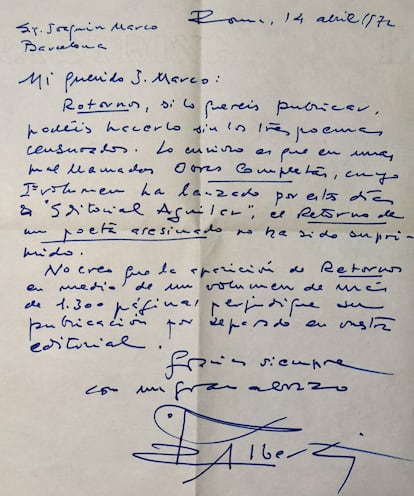 Roma, 14 abril 1972
Sr. Joaquín Marco
Barcelona
Mi querido J. Marco:
Retornos, si lo quereis publicar,
podéis hacerlo sin los tres poemas
censurados. Lo curioso es que en unas
mal llamadas Obras Completas, cuyo
I volumen ha lanzado por estos días
la "Editorial Aguilar", el Retorno de
un poeta asesinado no ha sido supri-
mido.
No creo que la aparición de Retornos
en medio de un volumen de más
de 1.300 páginas perjudique su
publicación por separado en vuestra
editorial.
Gracias siempre
con un gran abrazo
R. Alberti